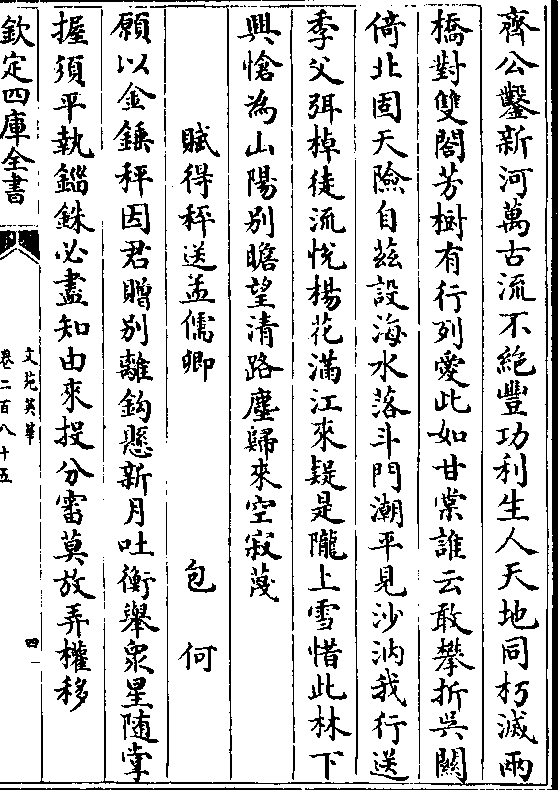 齊公鑿新河萬古流不絶豐功利生人天地同朽滅兩
橋對雙閣芳樹有行列愛此如甘棠誰云敢攀折吳關
倚北固天險自兹設海水落斗門潮平見沙汭我行送
季父弭棹徒流悦楊花滿江來疑是隴上雪惜此林下
興愴為山陽别瞻望清路塵歸來空寂蔑
賦得秤送孟儒卿 包何
願以金錘秤因君贈别離鈎懸新月吐衡舉衆星隨掌
握須平執錙銖必盡知由來投分審莫放弄權移
欽定四庫全書
文苑英華
卷二百八十五
四